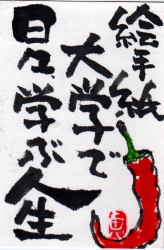 絵手紙
大学で
日々学ぶ人生